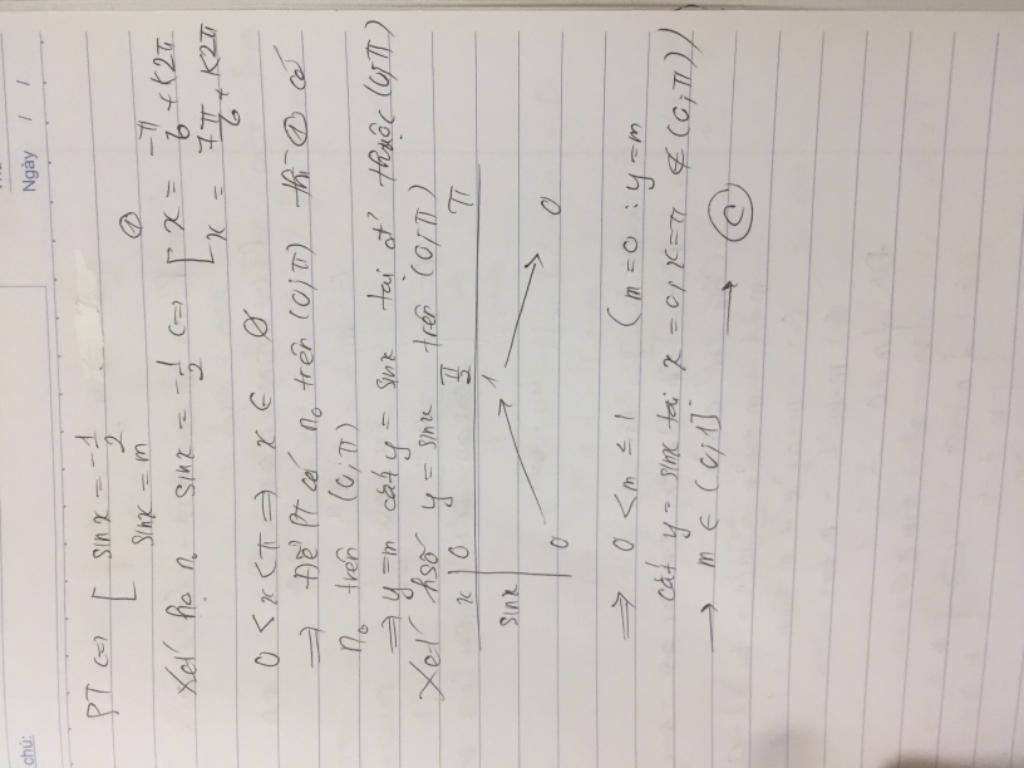 Ngày
chú:
PT <=> [ sinx = -1/2
sinx = m ①
Xét họ n₀ sinx = -1/2 <=> [ x = -π/6 + K2π
x = 7π/6 + K2π
0 < x < π => x ∈ ∅
=> Để PT có n₀ trên (0;π) thì ① có
n₀ trên (0;π)
=> y = m cắt y = sinx tại đ' thuộc (0;π)
Xét hsố y = sinx trên (0;π)
x | 0 π/2 π
sinx | 0 ↗ 1 ↘ 0
=> 0 < m ≤ 1 (m = 0 : y = m
cắt y = sinx tại x = 0, x = π ∉ (0;π))
→ m ∈ (0;1] → Ⓒ